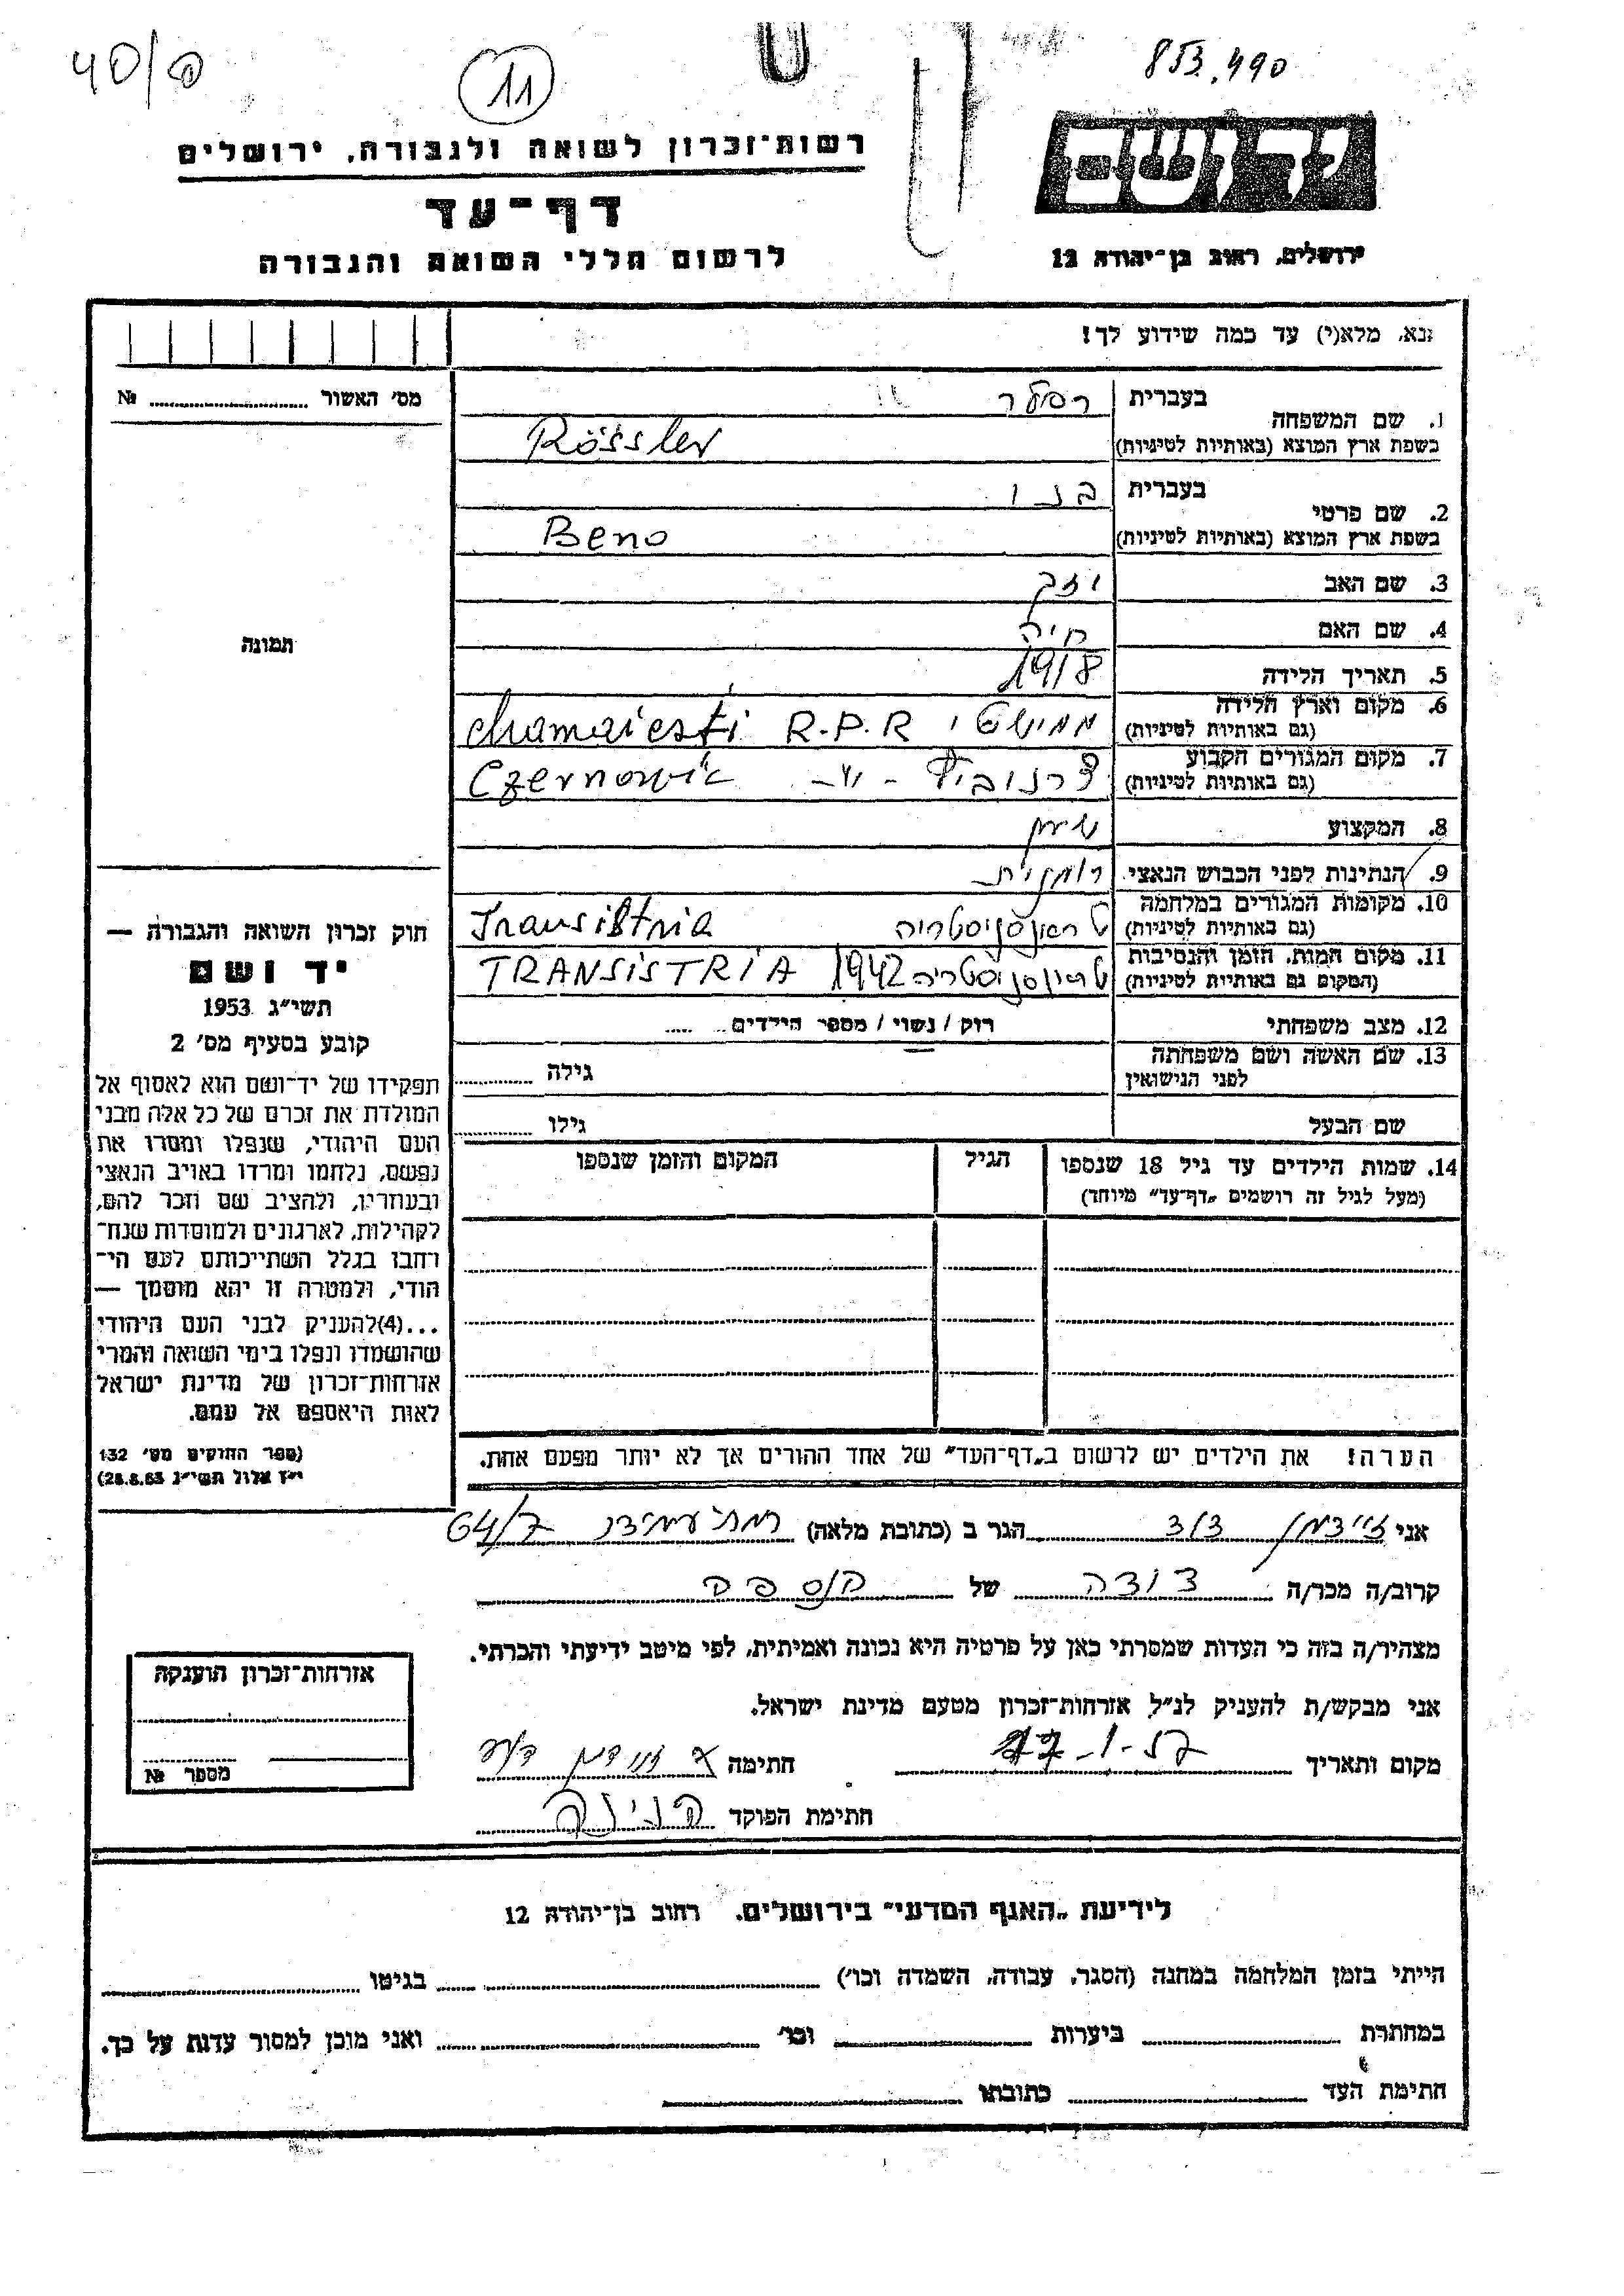 40/ס
11
853.490
רשות־זכרון לשואה ולגבורה, ירושלים
יד ושם
דף־עד
לרשום חללי השואה והגבורה
ירושלים, רחוב בן־יהודה 12
נא, מלא(י) עד כמה שידוע לך!
מס׳ האשור ........ №
1. שם המשפחה
בעברית
רסלר
בשפת ארץ המוצא (באותיות לטיניות)
Rössler
2. שם פרטי
בעברית
בנו
בשפת ארץ המוצא (באותיות לטיניות)
Beno
3. שם האב
4. שם האם חיה
תמונה
5. תאריך הלידה 1918
6. מקום וארץ הלידה
(גם באותיות לטיניות)
R.P.R
7. מקום המגורים הקבוע
(גם באותיות לטיניות)
Czernowic
8. המקצוע
9. הנתינות לפני הכבוש הנאצי רומנית
10. מקומות המגורים במלחמה
(גם באותיות לטיניות)
טראנסניסטריה Transistria
11. מקום המות, הזמן והנסיבות
(המקום גם באותיות לטיניות)
טראנסניסטריה 1942 TRANSISTRIA
12. מצב משפחתי
רווק / נשוי / מספר הילדים ........
13. שם האשה ושם משפחתה
לפני הנישואין
גילה ........
שם הבעל
גילו ........
14. שמות הילדים עד גיל 18 שנספו
(מעל לגיל זה רושמים „דף־עד״ מיוחד)
הגיל
המקום והזמן שנספו
חוק זכרון השואה והגבורה —
יד ושם
תשי״ג 1953
קובע בסעיף מס׳ 2
תפקידו של יד־ושם הוא לאסוף אל
המולדת את זכרם של כל אלה מבני
העם היהודי, שנפלו ומסרו את
נפשם, נלחמו ומרדו באויב הנאצי
ובעוזריו, ולהציב שם וזכר להם,
לקהילות, לארגונים ולמוסדות שנח־
רחבו בגלל השתייכותם לעם הי־
הודי, ולמטרה זו יהא מוסמך —
...(4)להעניק לבני העם היהודי
שהושמדו ונפלו בימי השואה והמרי
אזרחות־זכרון של מדינת ישראל
לאות היאספם אל עמם.
(ספר החוקים מס׳ 132
י״ז אלול תשי״ג 28.8.53)
הערה! את הילדים יש לרשום ב„דף־העד״ של אחד ההורים אך לא יותר מפעם אחת.
אני זיידמן דוד הגר ב (כתובת מלאה) רמת עמידר 64/7
קרוב/ה מכר/ה דודה של הנספה
מצהיר/ה בזה כי העדות שמסרתי כאן על פרטיה היא נכונה ואמיתית, לפי מיטב ידיעתי והכרתי.
אני מבקש/ת להעניק לנ״ל אזרחות־זכרון מטעם מדינת ישראל.
מקום ותאריך 27-1-57 חתימה
חתימת הפוקד
אזרחות־זכרון הוענקה
מספר №
לידיעת „האגף המדעי״ בירושלים, רחוב בן־יהודה 12
הייתי בזמן המלחמה במחנה (הסגר, עבודה, השמדה וכו׳) ........ בגיטו ........
במחתרת ........ ביערות ........ וכו׳ ........ ואני מוכן למסור עדות על כך.
חתימת העד ........ כתובתו ........